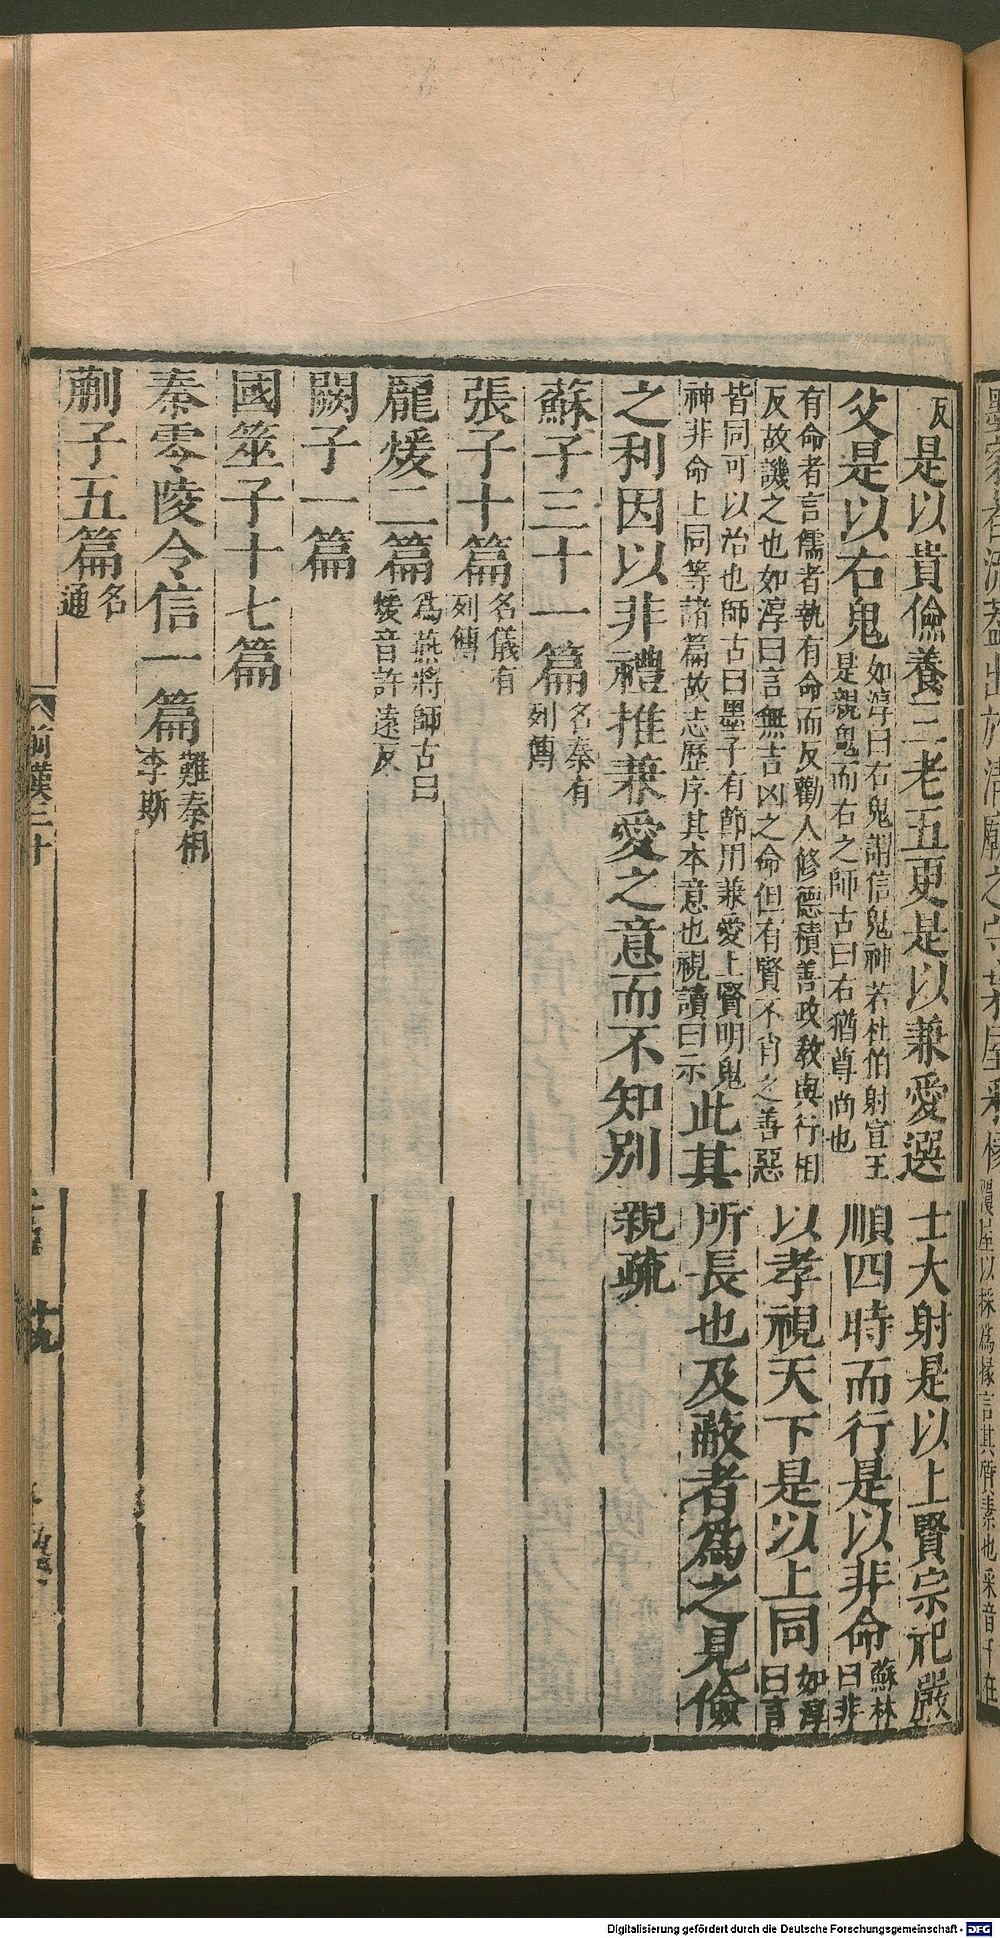 墨家者流蓋出於清廟之守茅屋采椽
屋以採爲椽言其質素也采音千在
反是以貴儉養三老五更是以兼愛選士大射是以上賢宗祀嚴
父是以右鬼
如淳曰右鬼謂信鬼神若杜伯射宣王
是親鬼而右之師古曰右猶尊尚也
順四時而行是以非命
蘇林
曰非
有命者言儒者執有命而反勸人修德積善政教與行相
反故譏之也如淳曰言無吉凶之命但有賢不肖之善惡
以孝視天下是以上同
如淳
曰言
皆同可以治也師古曰墨子有節用兼愛上賢明鬼
神非命上同等諸篇故志歷序其本意也視讀曰示
此其所長也及蔽者爲之見儉
之利因以非禮推兼愛之意而不知別親疏
蘇子三十一篇
名秦有
列傳
張子十篇
名儀有
列傳
龐煖二篇
爲燕將師古曰
煖音許遠反
闕子一篇
國筮子十七篇
秦零陵令信一篇
難秦相
李斯
蒯子五篇
名
通
前漢三十
Digitalisierung gefördert durch die Deutsche Forschungsgemeinschaft - DFG